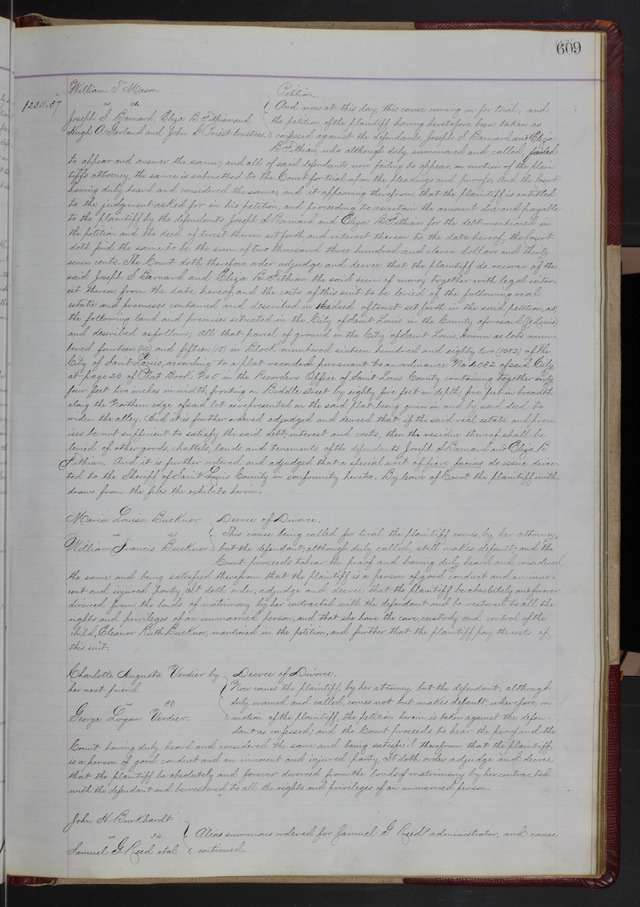 609
William T Mason Petition.
$2311.37 vs } And now at this day, this cause coming on for trial, and
Joseph S Barnard, Eliza B Fithian and the petition of the plaintiff having heretofore been taken as
Hugh A Garland and John T Priest trustees. confessed against the defendants Joseph S Barnard and Eliza
B Fithian, who although duly summoned and called, failed
to appear and answer the same; and all of said defendants now failing to appear, on motion of the plain
tiffs attorney, the same is submitted to the Court for trial upon the pleadings and proofs, and the Court
having duly heard and considered the same, and it appearing therefrom that the plaintiff is entitled
to the judgment asked for in his petition, and proceeding to ascertain the amount due and payable
to the plaintiff by the defendants Joseph S Barnard and Eliza B Fithian for the debt mentioned in
the petition and the deed of trust therein set forth, and interest thereon to the date hereof, the Court
doth find the same to be the sum of two thousand three hundred and eleven dollars and thirty
seven cents. The Court doth therefore order adjudge and decree that the plaintiff do recover of the
said Joseph S Barnard and Eliza B Fithian the said sum of money together with legal inter
est thereon from the date hereof, and the costs of this suit to be levied of the following real
estate and premises contained and described in the deed of trust set forth in the said petition, as
the following land and premises situated in the City of Saint Louis in the County aforesaid (St Louis)
and described as follows, all that parcel of ground in the City of Saint Louis, known as lots num
bered fourteen (14) and fifteen (15) in Block numbered sixteen hundred and eighty two (1682) of the
City of Saint Louis, according to a plat recorded pursuant to an ordinance No of said City
at page 20 of Plat Book No 5 in the Recorders Office of Saint Louis County containing together sixty
four feet two inches in width fronting on Biddle street by eighty five feet in depth, five feet in breadth
along the Northern edge of said lot is represented on the said plat being given or and be said deed to
widen the alley. And it is further ordered adjudged and decreed that if the said real estate and prem
ises be not sufficient to satisfy the said debt, interest and costs, then the residue thereof shall be
levied of other goods, chattels, lands and tenements of the defendants Joseph S Barnard and Eliza B
Fithian. And it is further ordered and adjudged that a special writ of fieri facias do issue direc
ted to the Sheriff of Saint Louis County in conformity hereto. By leave of Court the plaintiff with
draws from the files the exhibits herein.
Maria Louisa Bucknor Decree of Divorce.
vs } This cause being called for trial the plaintiff comes by her attorney
William Francis Bucknor but the defendant, although duly called, still makes default, and the
Court proceeds to hear the proof and having duly heard and considered
the same and being satisfied therefrom that the plaintiff is a person of good conduct and an inno
cent and injured party, it doth order, adjudge and decree that the plaintiff be absolutely and forever
divorced from the bonds of matrimony by her contracted with the defendant and be restored to all the
rights and privileges of an unmarried person, and that she have the care, custody and control of the
child, Eleanor Ruth Bucknor, mentioned in the petition, and further that the plaintiff pay the costs of
this suit.
Charlotte Augusta Verdier by Decree of Divorce.
her next friend } Now comes the plaintiff, by her attorney, but the defendant, although
vs duly warned and called, comes not but makes default; wherefore, on
George Logan Verdier. motion of the plaintiff, the petition herein is taken against the defen
dant as confessed; and the Court proceeds to hear the proof and the
Court having duly heard and considered the same and being satisfied therefrom that the plaintiff
is a person of good conduct and an innocent and injured party, It doth order adjudge and decree
that the plaintiff be absolutely and forever divorced from the bonds of matrimony by her contracted
with the defendant and be restored to all the rights and privileges of an unmarried person.
John H Burkhardt
vs } Alias summons ordered for Samuel G Reeds administrator, and cause
Samuel G Reed et al continued.